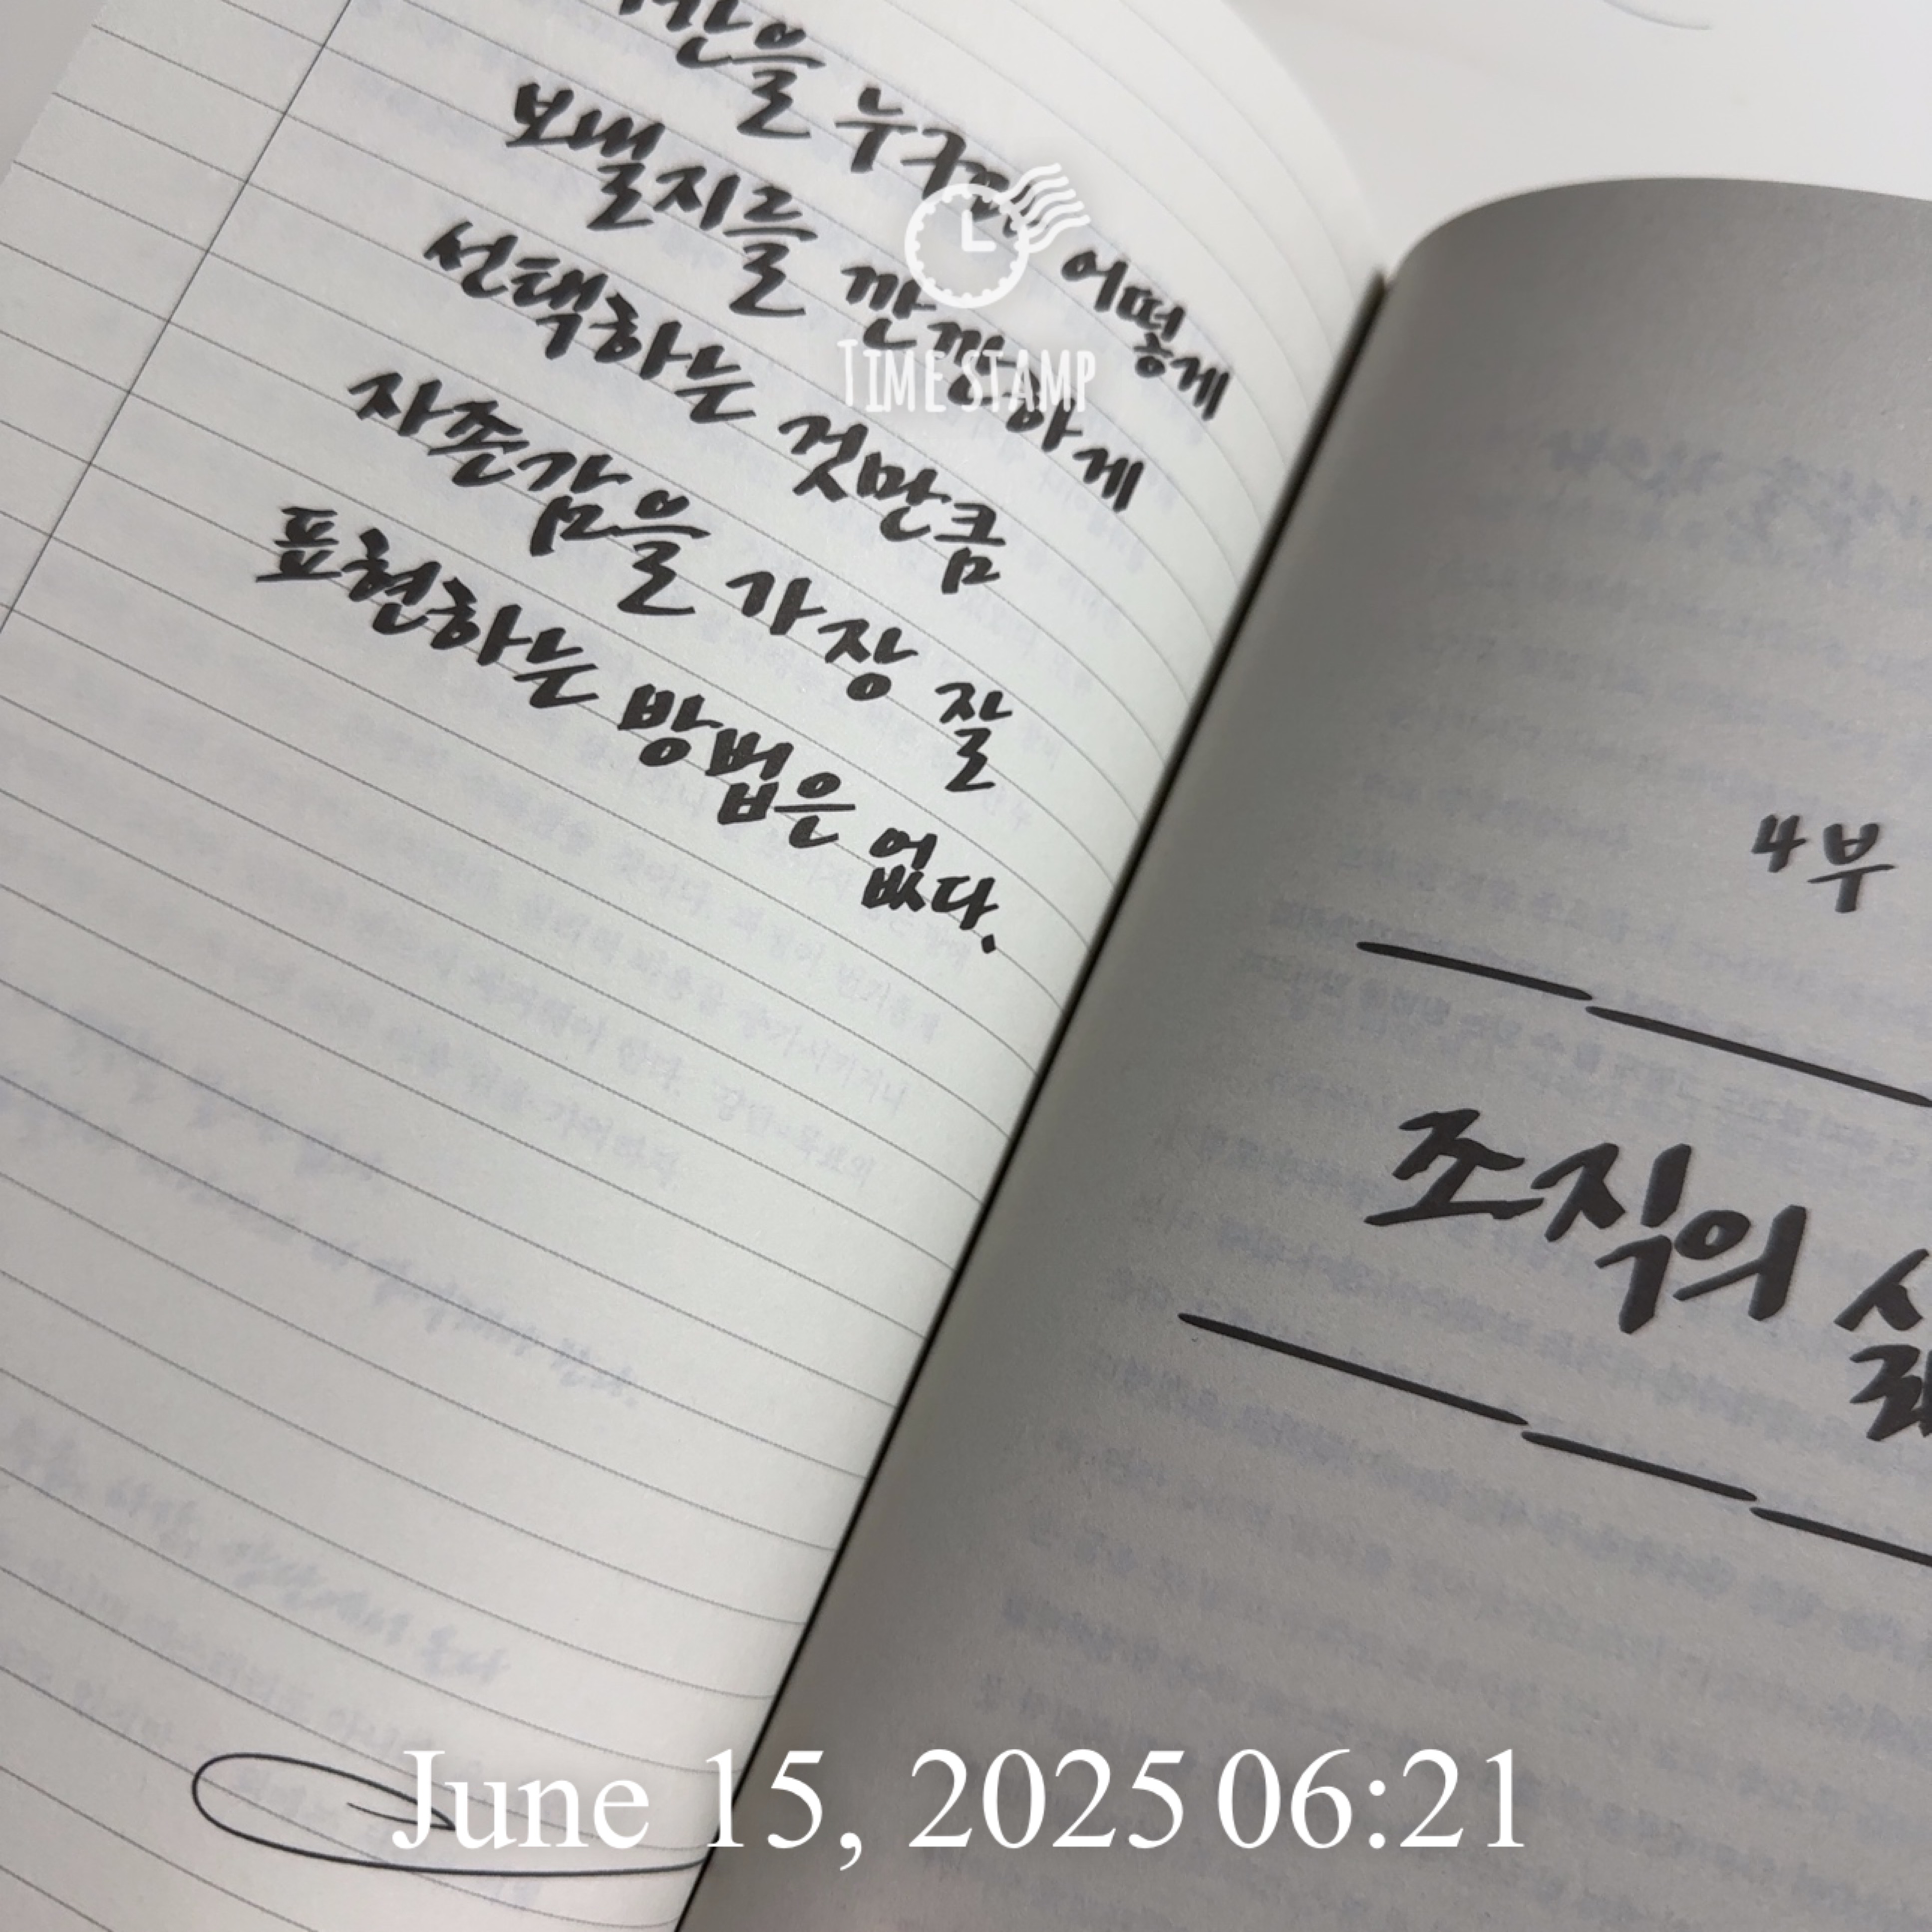 누구와 어떻게
보낼지를 깐깐하게
선택하는 것만큼
자존감을 가장 잘
표현하는 방법은 없다.
4부
조직의
TIMESTAMP
June 15, 2025 06:21